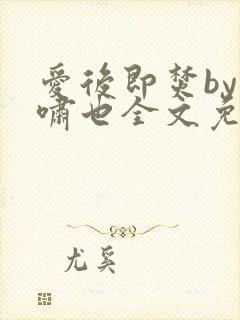 爱后即焚by
啸也全文免
尤奚